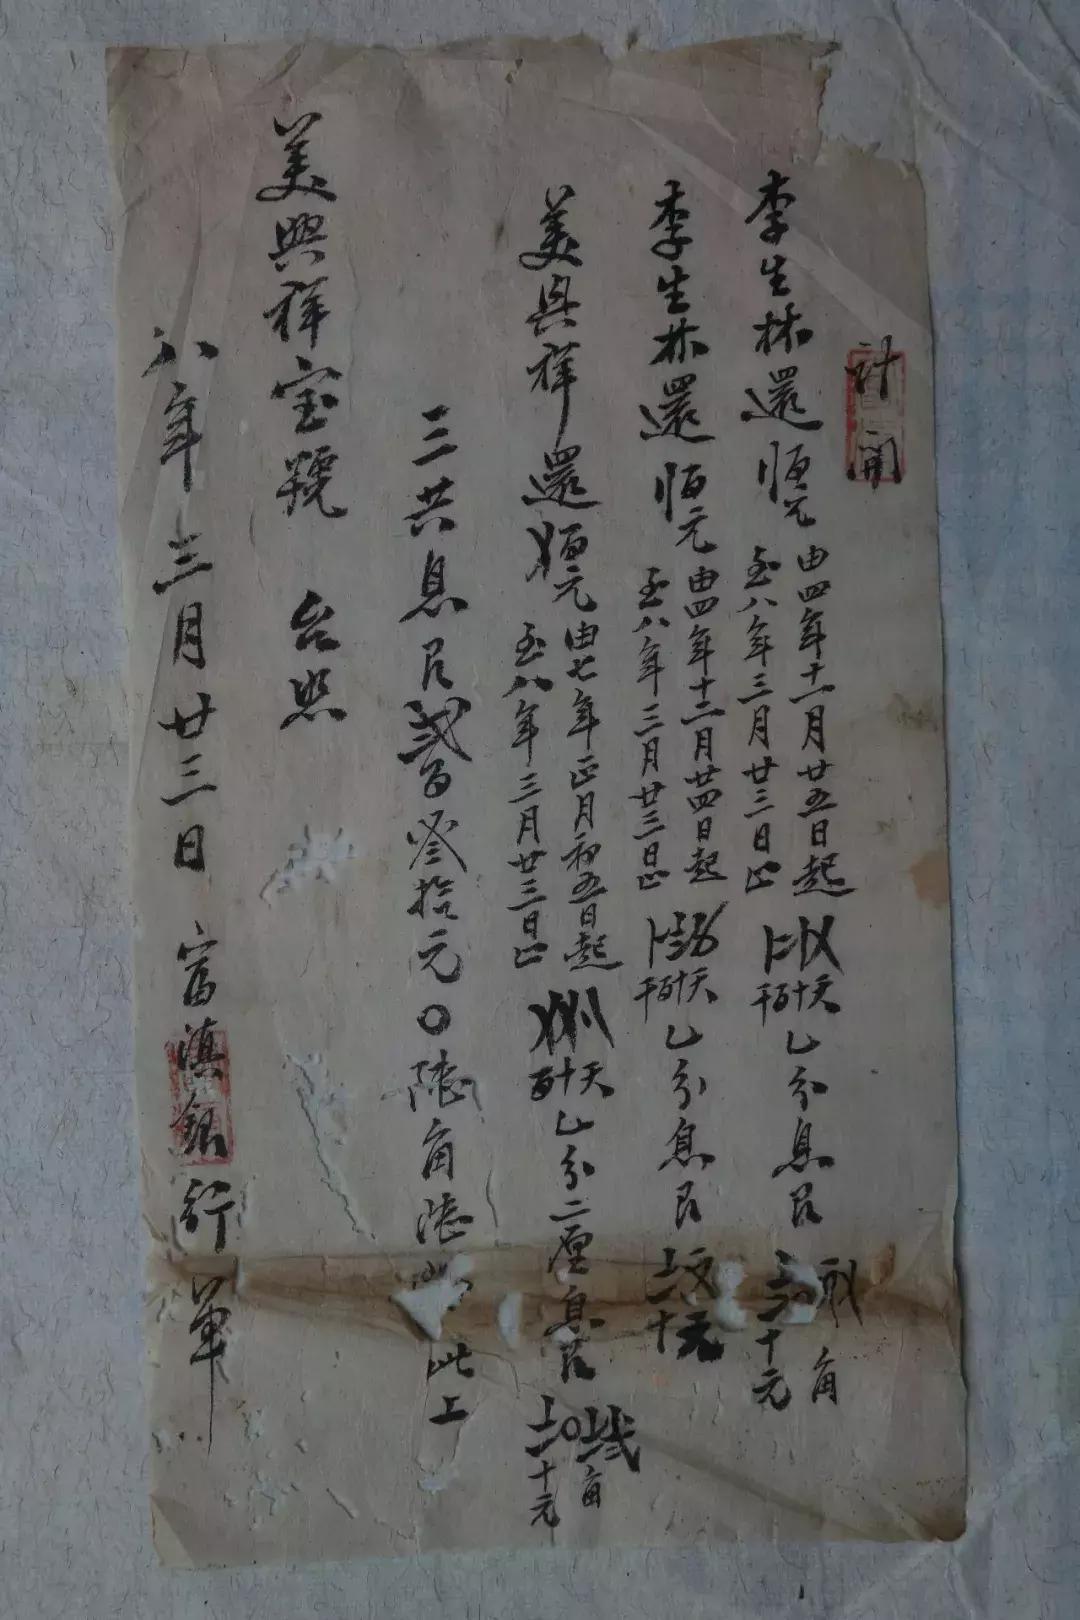 計開
李生林還恒元由四年十一月廿五日起
至八年三月廿三日止
千百十天乙分息銀
十元
角
李生林還恒元由四年十二月廿四日起
至八年三月廿三日止
千百十天乙分息銀
十元
美興祥還恒元由七年正月初五日起
至八年三月廿三日止
百十天乙分二厘息銀
十元
角
三共息銀貳百叁拾元〇陸角陸 此上
美興祥宝號 台照
八年三月廿三日 富滇銀行單